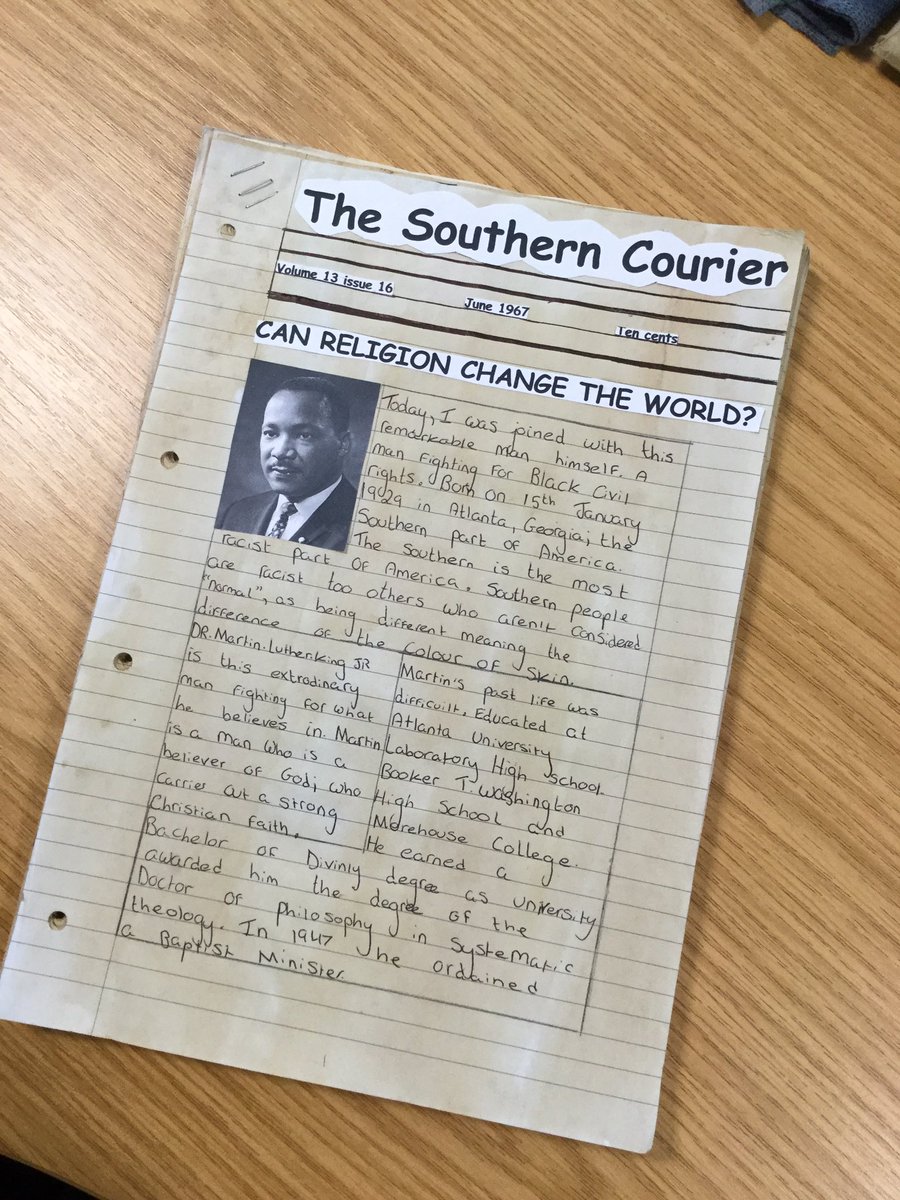 The Southern Courier
Volume 13 issue 16
June 1967
Ten cents
CAN RELIGION CHANGE THE WORLD?
Today, I was joined with this
remarkable man himself. A
man fighting for Black Civil
rights. Born on 15th January
1929 in Atlanta, Georgia; the
Southern part of America.
The southern is the most
racist part of America. Southern people
are racist too others who aren't considered
"normal", as being different meaning the
difference of the colour of skin.
DR.Martin.Luther.King JR
is this extrodinary
man fighting for what
he believes in. Martin
is a man who is a
believer of God; who
carries out a strong
Christian faith.
Martin's past life was
difficuilt. Educated at
Atlanta University
Laboratory High school.
Booker T. Washington
High School and
Morehouse College.
He earned a
Bachelor of Divinly degree as university
awarded him the degree of the
Doctor of Philosophy in Systematic
theology. In 1947 he ordained
a Baptist Minister.